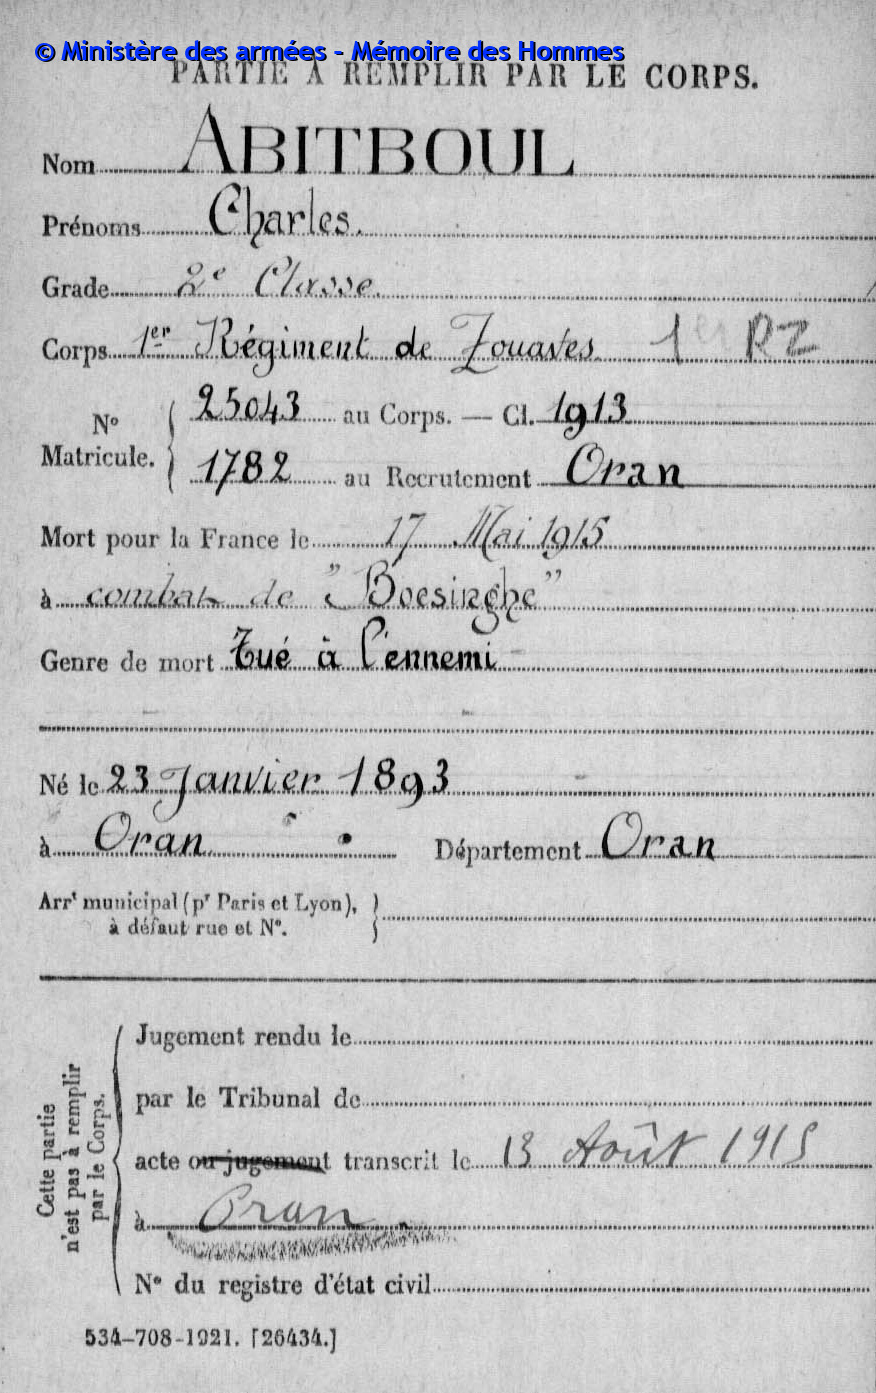 © Ministère des armées - Mémoire des Hommes
PARTIE À REMPLIR PAR LE CORPS.
Nom ABITBOUL
Prénoms Charles.
Grade 2e Classe.
Corps 1er Régiment de Zouaves 1er RZ
N° Matricule. { 25043 au Corps. — Cl. 1913
1782 au Recrutement Oran
Mort pour la France le 17 Mai 1915
à combat de "Boesinghe"
Genre de mort Tué à l'ennemi
Né le 23 Janvier 1893
à Oran Département Oran
Arrt municipal (pr Paris et Lyon), }
à défaut rue et N°.
Cette partie
n'est pas à remplir
par le Corps.
Jugement rendu le
par le Tribunal de
acte ou jugement transcrit le 13 Août 1915
à Oran
N° du registre d'état civil
534-708-1921. [26434.]